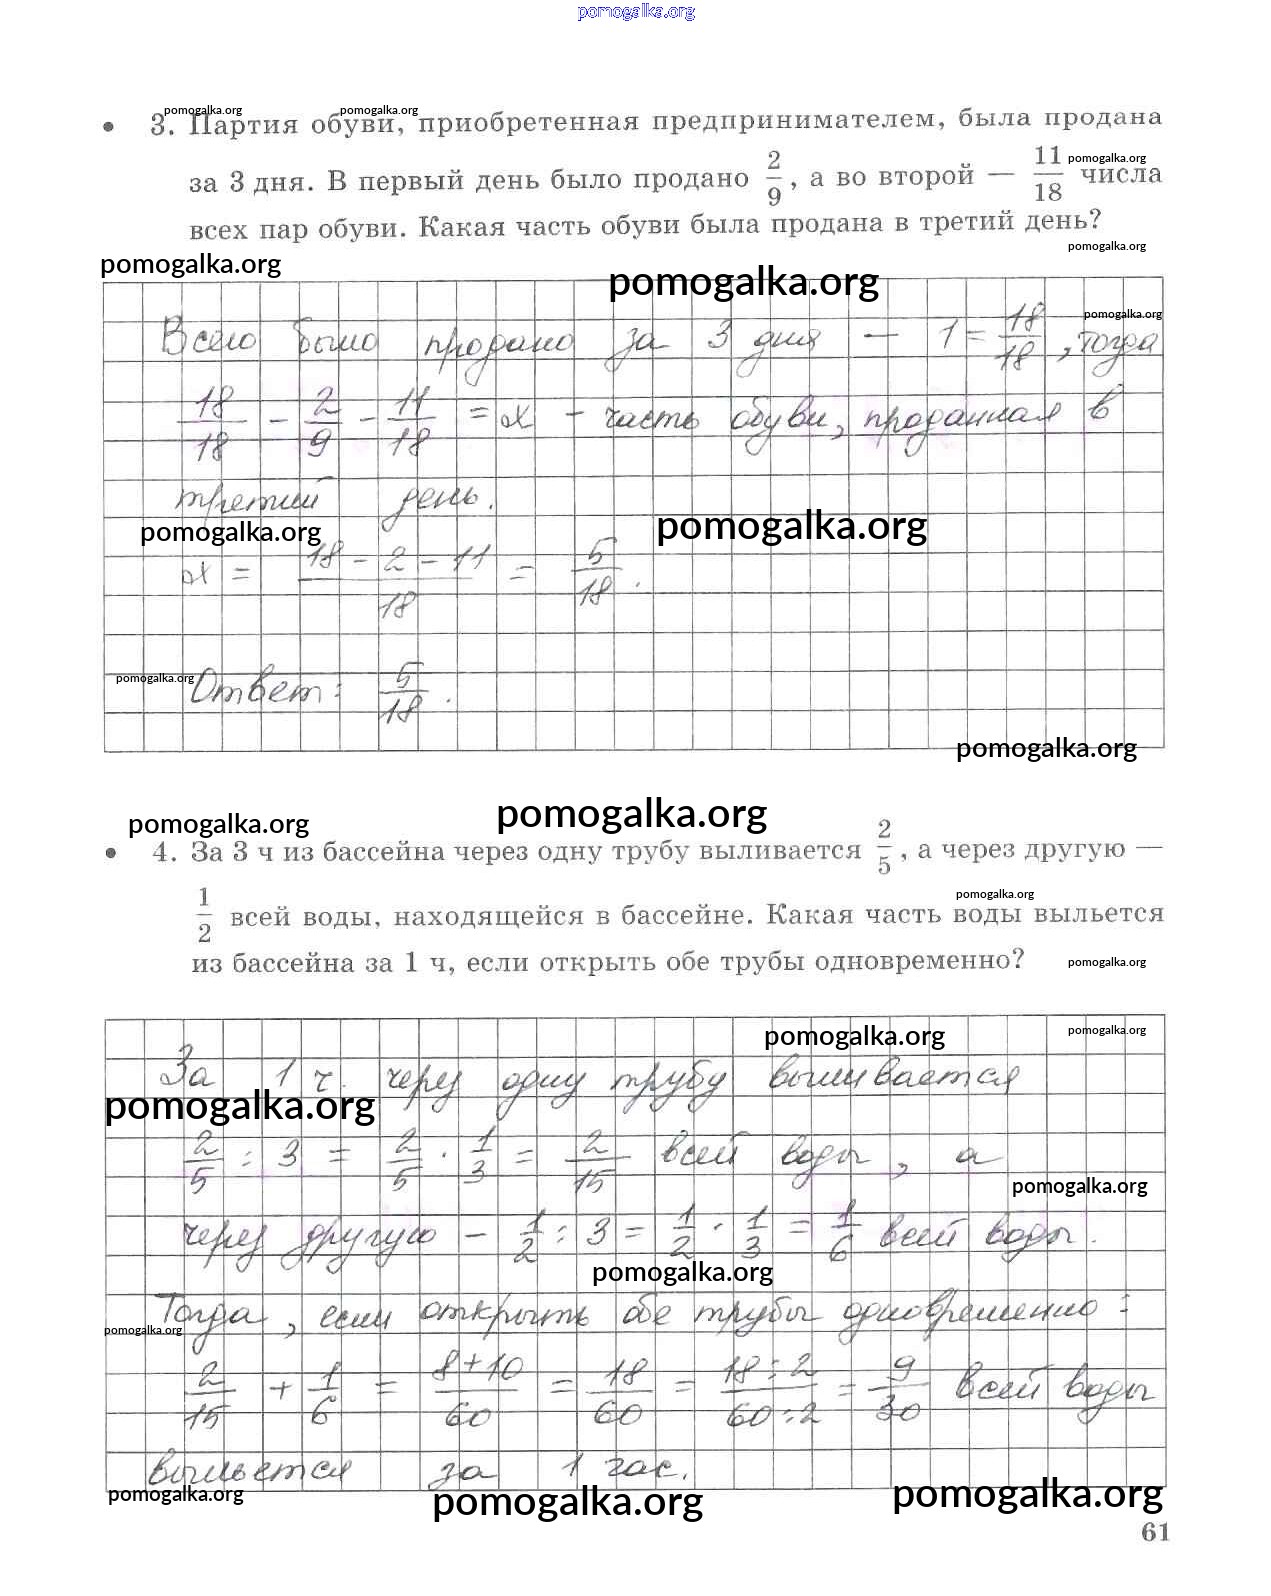 pomogalka.org
pomogalka.org pomogalka.org
3. Партия обуви, приобретенная предпринимателем, была продана
за 3 дня. В первый день было продано 2/9, а во второй — 11/18 числа
pomogalka.org
всех пар обуви. Какая часть обуви была продана в третий день?
pomogalka.org
pomogalka.org pomogalka.org
pomogalka.org
Всего было продано за 3 дня — 1 = 18/18, тогда
18/18 - 2/9 - 11/18 = x - часть обуви, проданная в
третий день.
pomogalka.org pomogalka.org
x = (18 - 2 - 11)/18 = 5/18.
pomogalka.org
Ответ: 5/18.
pomogalka.org
pomogalka.org pomogalka.org
4. За 3 ч из бассейна через одну трубу выливается 2/5, а через другую —
pomogalka.org
1/2 всей воды, находящейся в бассейне. Какая часть воды выльется
из бассейна за 1 ч, если открыть обе трубы одновременно?
pomogalka.org
pomogalka.org pomogalka.org
За 1 ч. через одну трубу выливается
pomogalka.org
2/5 : 3 = 2/5 · 1/3 = 2/15 всей воды, а
pomogalka.org
через другую - 1/2 : 3 = 1/2 · 1/3 = 1/6 всей воды.
pomogalka.org
Тогда, если открыть обе трубы одновременно:
pomogalka.org
2/15 + 1/6 = (8+10)/60 = 18/60 = (18÷2)/(60÷2) = 9/30 всей воды
выльется за 1 час.
pomogalka.org pomogalka.org pomogalka.org
61